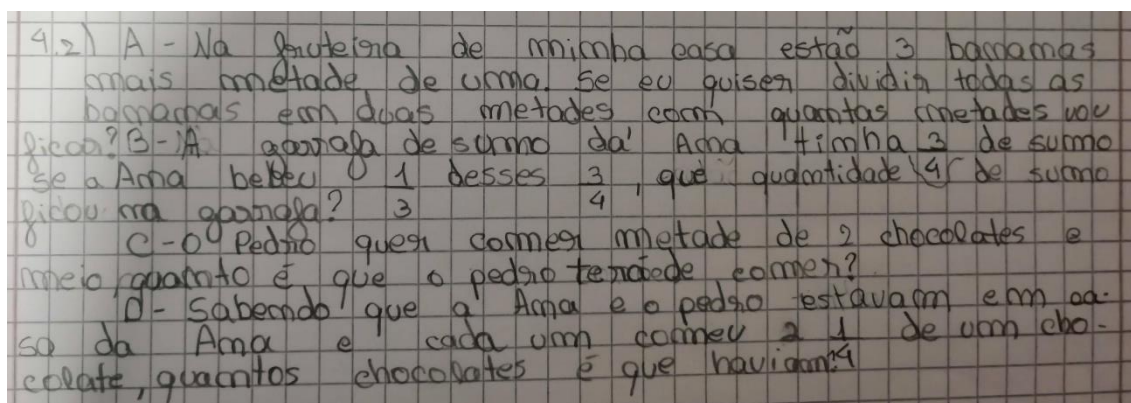 4.2) A - Na fruteira de minha casa estão 3 bananas
mais metade de uma. Se eu quiser dividir todas as
bananas em duas metades com quantas metades vou
ficar? B - A garrafa de sumo da Ana tinha 3/4 de sumo
se a Ana bebeu 1/3 desses 3/4, que quantidade de sumo
ficou na garrafa?
C - O Pedro quer comer metade de 2 chocolates e
meio, quanto é que o pedro comer?
D - Sabendo que a Ana e o pedro estavam em ca-
sa da Ana e cada um comeu 2 1/4 de um cho-
colate, quantos chocolates é que haviam?